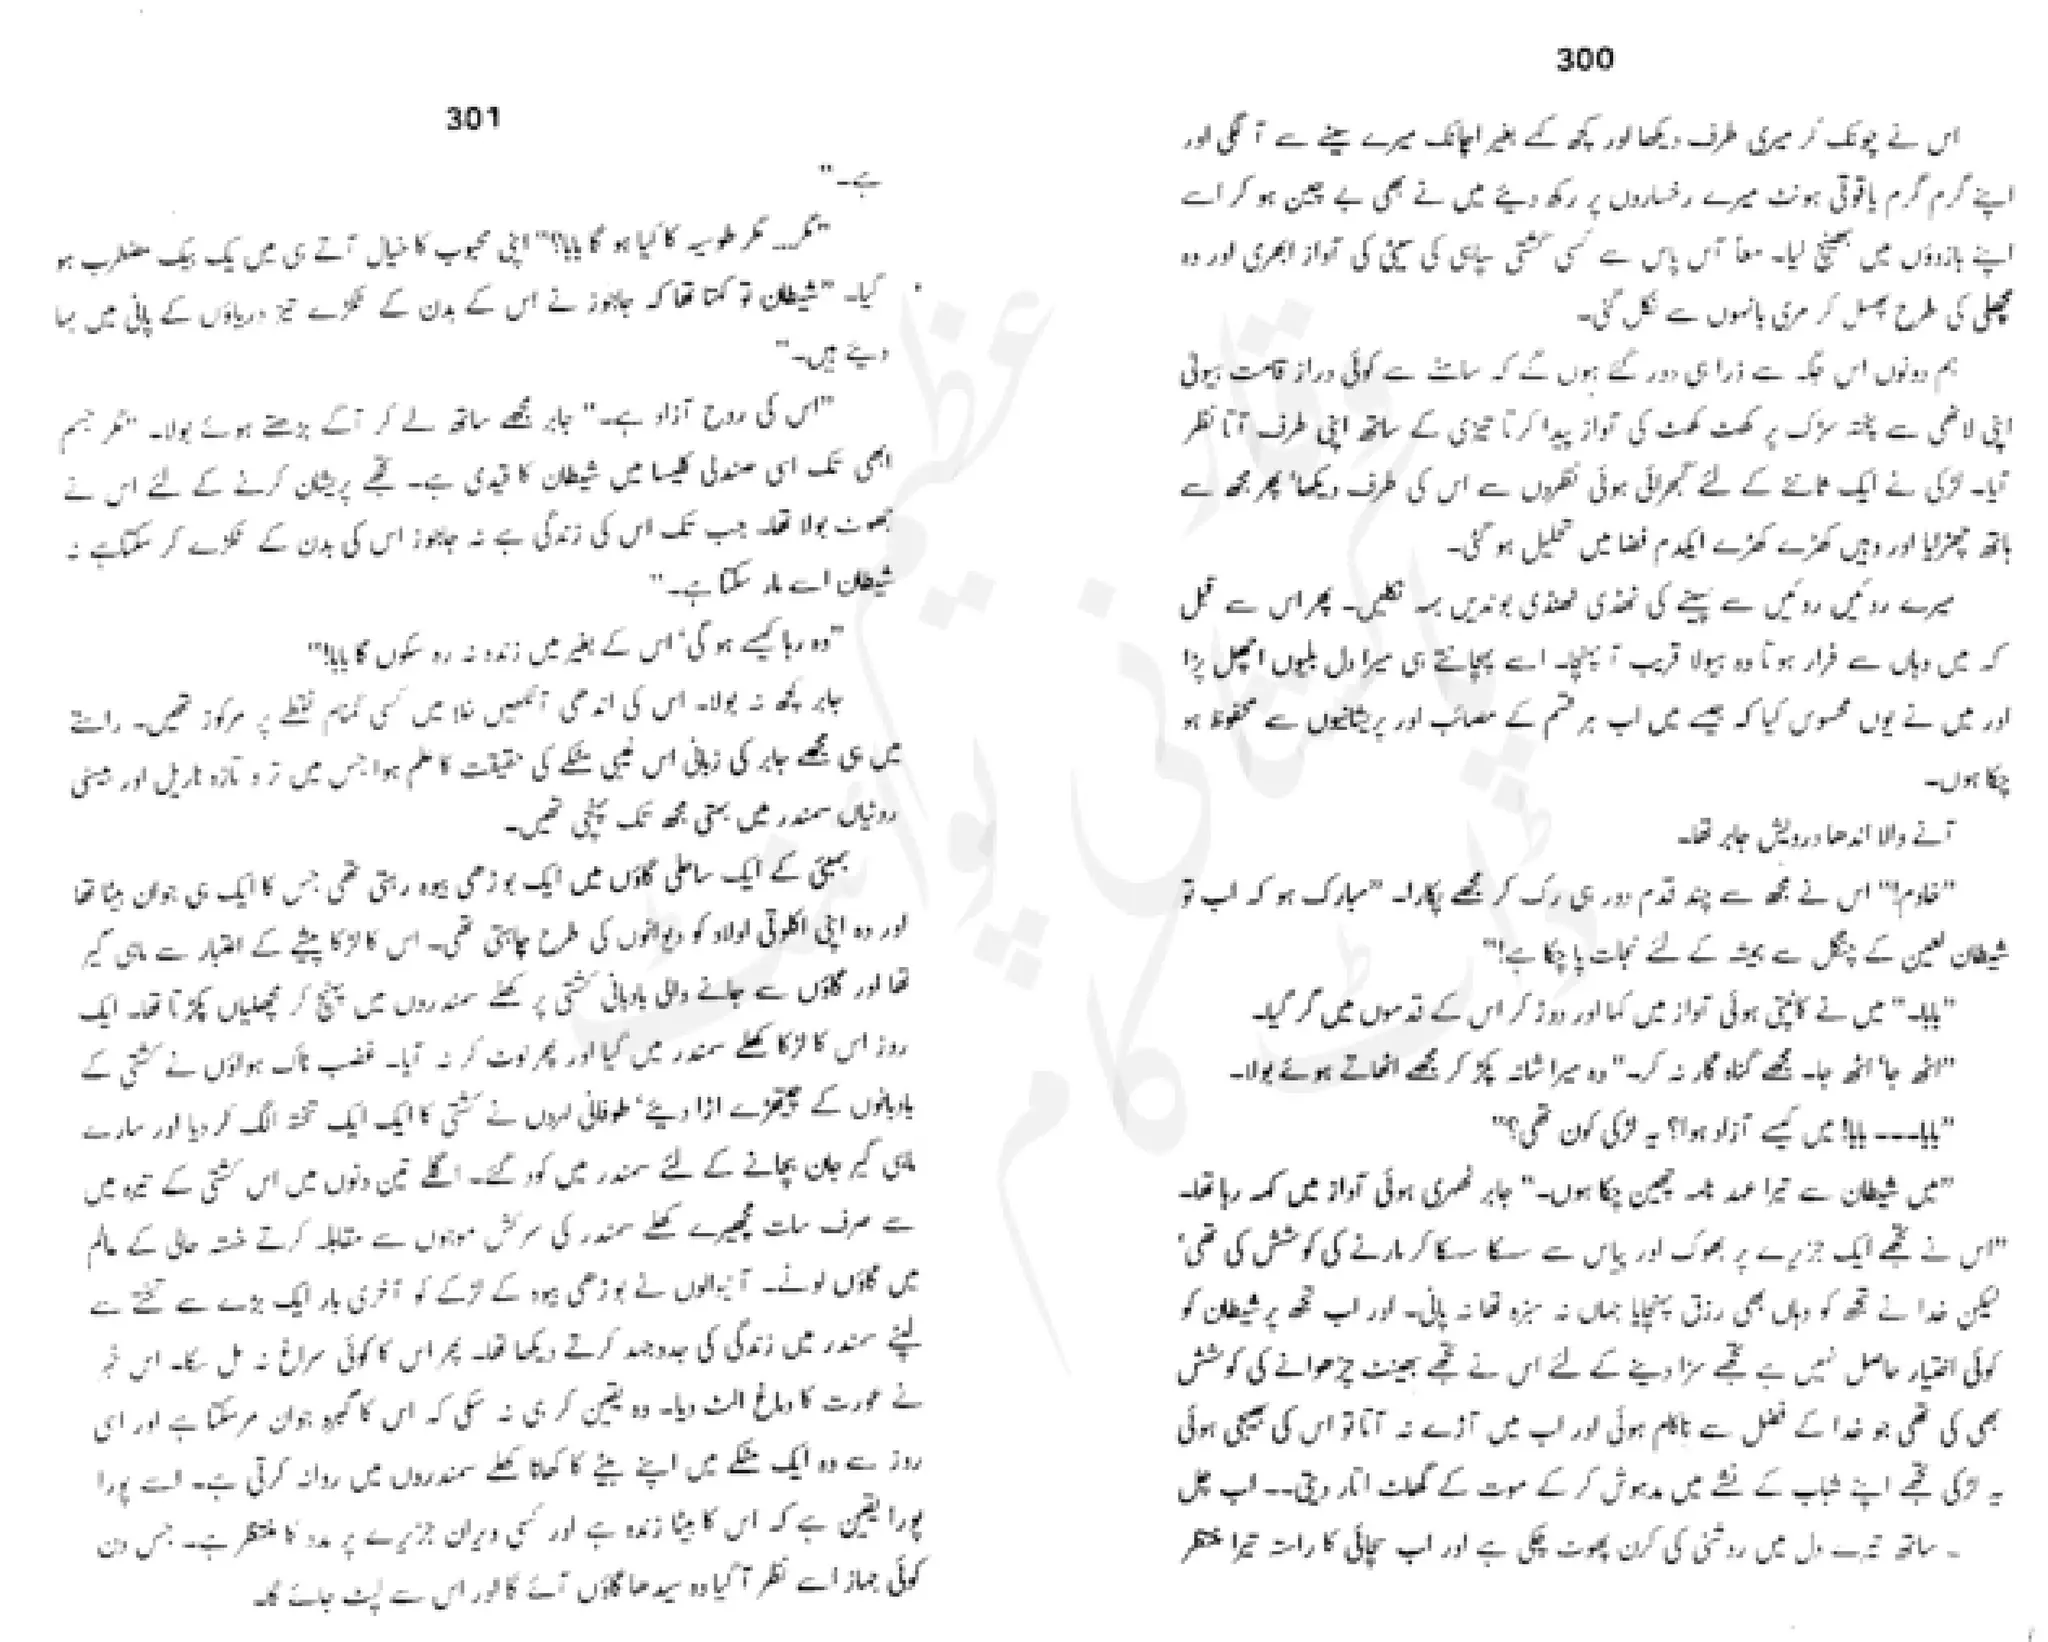 300
اس نے چونک کر میری طرف دیکھا اور کچھ کہے بغیر اچانک میرے سینے سے آ لگی اور
اپنے گرم گرم یاقوتی ہونٹ میرے رخساروں پر رکھ دیئے میں نے بھی بے چین ہو کر اسے
اپنے بازوؤں میں بھینچ لیا۔ معاً آس پاس سے کسی گشتی سپاہی کی سیٹی کی آواز ابھری اور وہ
مچھلی کی طرح پھسل کر مری بانہوں سے نکل گئی۔
ہم دونوں اس جگہ سے ذرا ہی دور گئے ہوں گے کہ سامنے سے کوئی دراز قامت ہیولی
اپنی لاٹھی سے پختہ سڑک پر کھٹ کھٹ کی آواز پیدا کرتا تیزی کے ساتھ اپنی طرف آتا نظر
آیا۔ لڑکی نے ایک ثانئے کے لئے گھبرائی ہوئی نظروں سے اس کی طرف دیکھا، پھر مجھ سے
ہاتھ چھڑایا اور وہیں کھڑے کھڑے ایکدم فضا میں تحلیل ہو گئی۔
میرے روئیں روئیں سے پسینے کی ٹھنڈی ٹھنڈی بوندیں بہہ نکلیں۔ پھر اس سے قبل
کہ میں وہاں سے فرار ہوتا وہ ہیولا قریب آ پہنچا۔ اسے پہچانتے ہی میرا دل بلیوں اچھل پڑا
اور میں نے یوں محسوس کیا کہ جیسے میں اب ہر قسم کے مصائب اور پریشانیوں سے محفوظ ہو
چکا ہوں۔
آنے والا اندھا درویش جابر تھا۔
"خادم!" اس نے مجھ سے چند قدم دور ہی رک کر مجھے پکارا۔ "مبارک ہو کہ اب تو
شیطان لعین کے چنگل سے ہمیشہ کے لئے نجات پا چکا ہے!"
"بابا۔" میں نے کانپتی ہوئی آواز میں کہا اور دوڑ کر اس کے قدموں میں گر گیا۔
"اٹھ جا، اٹھ جا۔ مجھے گناہ گار نہ کر۔" وہ میرا شانہ پکڑ کر مجھے اٹھاتے ہوئے بولا۔
"بابا۔۔۔ بابا! میں کیسے آزاد ہوا؟ یہ لڑکی کون تھی؟"
"میں شیطان سے تیرا عہد نامہ چھین چکا ہوں۔" جابر ٹھہری ہوئی آواز میں کہہ رہا تھا۔
"اس نے تجھے ایک جزیرے پر بھوک اور پیاس سے سسکا سسکا کر مارنے کی کوشش کی تھی،
لیکن خدا نے تجھ کو وہاں بھی رزق پہنچایا جہاں نہ سبزہ تھا نہ پانی۔ اور اب تجھ پر شیطان کو
کوئی اختیار حاصل نہیں ہے تجھے سزا دینے کے لئے اس نے تجھے بھینٹ چڑھوانے کی کوشش
بھی کی تھی جو خدا کے فضل سے ناکام ہوئی اور اب میں آڑے نہ آتا تو اس کی بھیجی ہوئی
یہ لڑکی تجھے اپنے شباب کے نشے میں مدہوش کر کے موت کے گھاٹ اتار دیتی۔۔ اب چل
۔ ساتھ تیرے دل میں روشنی کی کرن پھوٹ چکی ہے اور اب سچائی کا راستہ تیرا منتظر
301
ہے۔"
"مگر... مگر طوسیہ کا کیا ہو گا بابا؟" اپنی محبوبہ کا خیال آتے ہی میں یک بیک مضطرب ہو
گیا۔ "شیطان تو کہتا تھا کہ جابلوز نے اس کے بدن کے ٹکڑے تیز دریاؤں کے پانی میں بہا
دیئے ہیں۔"
"اس کی روح آزاد ہے۔" جابر مجھے ساتھ لے کر آگے بڑھتے ہوئے بولا۔ "مگر جسم
ابھی تک اسی صندلی کلیسا میں شیطان کا قیدی ہے۔ تجھے پریشان کرنے کے لئے اس نے
جھوٹ بولا تھا۔ جب تک اس کی زندگی ہے نہ جابلوز اس کی بدن کے ٹکڑے کر سکتا ہے نہ
شیطان اسے مار سکتا ہے۔"
"وہ رہا کیسے ہو گی، اس کے بغیر میں زندہ نہ رہ سکوں گا بابا!"
جابر کچھ نہ بولا۔ اس کی اندھی آنکھیں خلا میں کسی گمنام نقطے پر مرکوز تھیں۔ راستے
میں ہی مجھے جابر کی زبانی اس غیبی مٹکے کی حقیقت کا علم ہوا جس میں تر و تازہ ناریل اور میٹھی
روٹیاں سمندر میں بہتی مجھ تک پہنچی تھیں۔
بمبئی کے ایک ساحلی گاؤں میں ایک بوڑھی بیوہ رہتی تھی جس کا ایک ہی جوان بیٹا تھا
اور وہ اپنی اکلوتی اولاد کو دیوانوں کی طرح چاہتی تھی۔ اس کا لڑکا پیشے کے اعتبار سے ماہی گیر
تھا اور گاؤں سے جانے والی بادبانی کشتی پر کھلے سمندروں میں پہنچ کر مچھلیاں پکڑتا تھا۔ ایک
روز اس کا لڑکا کھلے سمندر میں گیا اور پھر لوٹ کر نہ آیا۔ غضب ناک ہواؤں نے کشتی کے
بادبانوں کے چیتھڑے اڑا دیئے، طوفانی لہروں نے کشتی کا ایک ایک تختہ الگ کر دیا اور سارے
ماہی گیر جان بچانے کے لئے سمندر میں کود گئے۔ اگلے تین دنوں میں اس کشتی کے تیرہ میں
سے صرف سات مچھیرے کھلے سمندر کی سرکش موجوں سے مقابلہ کرتے خستہ حالی کے عالم
میں گاؤں لوٹے۔ آنیوالوں نے بوڑھی بیوہ کے لڑکے کو آخری بار ایک بڑے سے تختے سے
لپٹے سمندر میں زندگی کی جدوجہد کرتے دیکھا تھا۔ پھر اس کا کوئی سراغ نہ مل سکا۔ اس خبر
نے عورت کا دماغ الٹ دیا۔ وہ یقین کر ہی نہ سکی کہ اس کا گبرو جوان مر سکتا ہے اور اسی
روز سے وہ ایک مٹکے میں اپنے بیٹے کا کھانا کھلے سمندروں میں روانہ کرتی ہے۔ اسے پورا
پورا یقین ہے کہ اس کا بیٹا زندہ ہے اور کسی ویران جزیرے پر مدد کا منتظر ہے۔ جس دن
کوئی جہاز اسے نظر آ گیا وہ سیدھا گاؤں آئے گا اور اس سے لپٹ جائے گا۔
عظیم
پاکستانی پوائنٹ
ڈاٹ کام